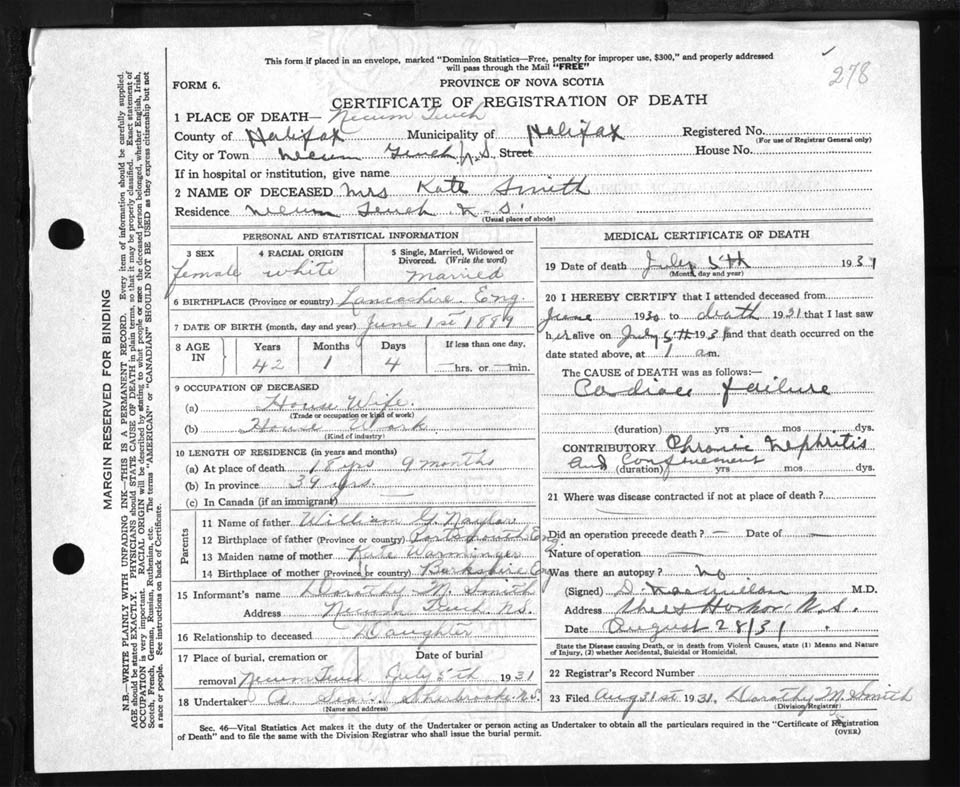 This form if placed in an envelope, marked "Dominion Statistics—Free, penalty for improper use, $300," and properly addressed
will pass through the Mail "FREE"
278
FORM 6.
PROVINCE OF NOVA SCOTIA
CERTIFICATE OF REGISTRATION OF DEATH
1 PLACE OF DEATH— Necum Teuch
County of Halifax Municipality of Halifax Registered No.
(For use of Registrar General only)
City or Town Necum Teuch N.S. Street House No.
If in hospital or institution, give name
2 NAME OF DECEASED Mrs Kate Smith
Residence Necum Teuch N.S.
(Usual place of abode)
PERSONAL AND STATISTICAL INFORMATION
3 SEX 4 RACIAL ORIGIN 5 Single, Married, Widowed or
Divorced. (Write the word)
female white married
6 BIRTHPLACE (Province or country) Lancashire. Eng.
7 DATE OF BIRTH (month, day and year) June 1st 1889
8 AGE IN Years Months Days If less than one day,
42 1 4 hrs. or min.
9 OCCUPATION OF DECEASED
(a) House Wife.
(Trade or occupation or kind of work)
(b) House Work
(Kind of industry)
10 LENGTH OF RESIDENCE (in years and months)
(a) At place of death 18 yrs 9 months
(b) In province 39 yrs.
(c) In Canada (if an immigrant) —
Parents
11 Name of father William G. Naylor
12 Birthplace of father (Province or country) Portsmouth Eng.
13 Maiden name of mother Kate Warminger
14 Birthplace of mother (Province or country) Berkshire Eng
15 Informant's name Dorothy M. Smith
Address Necum Teuch N.S.
16 Relationship to deceased Daughter
17 Place of burial, cremation or Date of burial
removal Necum Teuch July 5th 1931
18 Undertaker A. Sherbrooke N.S.
(Name and address)
MEDICAL CERTIFICATE OF DEATH
19 Date of death July 5th 1931
(Month, day and year)
20 I HEREBY CERTIFY that I attended deceased from
June 1930 to death 1931 that I last saw
her alive on July 5th 1931 and that death occurred on the
date stated above, at 1 am.
The CAUSE of DEATH was as follows:—
Cardiac failure
(duration) yrs mos dys.
CONTRIBUTORY Chronic Nephritis
and Confinement
(duration) yrs mos dys.
21 Where was disease contracted if not at place of death?
Did an operation precede death? — Date of —
Nature of operation —
Was there an autopsy? no
(Signed) D. Macmillan M.D.
Address Sheet Harbor N.S.
Date August 28/31
State the Disease causing Death, or in death from Violent Causes, state (1) Means and Nature
of Injury, (2) whether Accidental, Suicidal or Homicidal.
22 Registrar's Record Number
23 Filed Aug 31st 1931, Dorothy M. Smith
(Division Registrar)
Sec. 46—Vital Statistics Act makes it the duty of the Undertaker or person acting as Undertaker to obtain all the particulars required in the "Certificate of Registration
of Death" and to file the same with the Division Registrar who shall issue the burial permit.
(OVER)
MARGIN RESERVED FOR BINDING
N.B.—WRITE PLAINLY WITH UNFADING INK—THIS IS A PERMANENT RECORD. Every item of information should be carefully supplied.
AGE should be stated EXACTLY. PHYSICIANS should STATE CAUSE OF DEATH in plain terms, so that it may be properly classified. Exact statement of
OCCUPATION is very important. RACIAL ORIGIN will be described by stating to what people or race the deceased person belonged, whether English, Irish,
Scotch, French, German, Russian, Ruthenian, etc. The terms "AMERICAN" or "CANADIAN" SHOULD NOT BE USED as they express citizenship but not
a race or people. See instructions on back of Certificate.